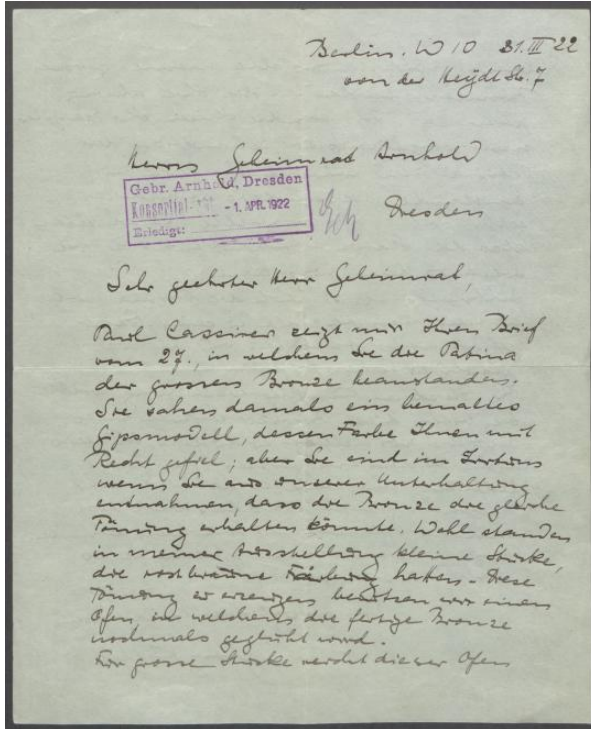 Berlin. W 10 31. III 22
von der Heydt St. 7
Herrn Geheimrat Arnhold
Gebr. Arnhold, Dresden
- 1. APR. 1922
Erledigt:
Dresden
Sehr geehrter Herr Geheimrat,
Paul Cassirer zeigt mir Ihren Brief
vom 27., in welchem Sie die Patina
der grossen Bronze beanstanden.
Sie sahen damals ein bemaltes
Gipsmodell, dessen Farbe Ihnen mit
Recht gefiel; aber Sie sind im Irrtum
wenn Sie aus unserer Unterhaltung
entnahmen, dass die Bronze die gleiche
Tönung erhalten könnte. Wohl standen
in meiner Ausstellung kleine Stücke,
die rostbraune Färbung hatten. Diese
Tönung zu erzeugen benützen wir einen
Ofen, in welchem die fertige Bronze
nochmals geglüht wird.
Für grosse Stücke reicht dieser Ofen